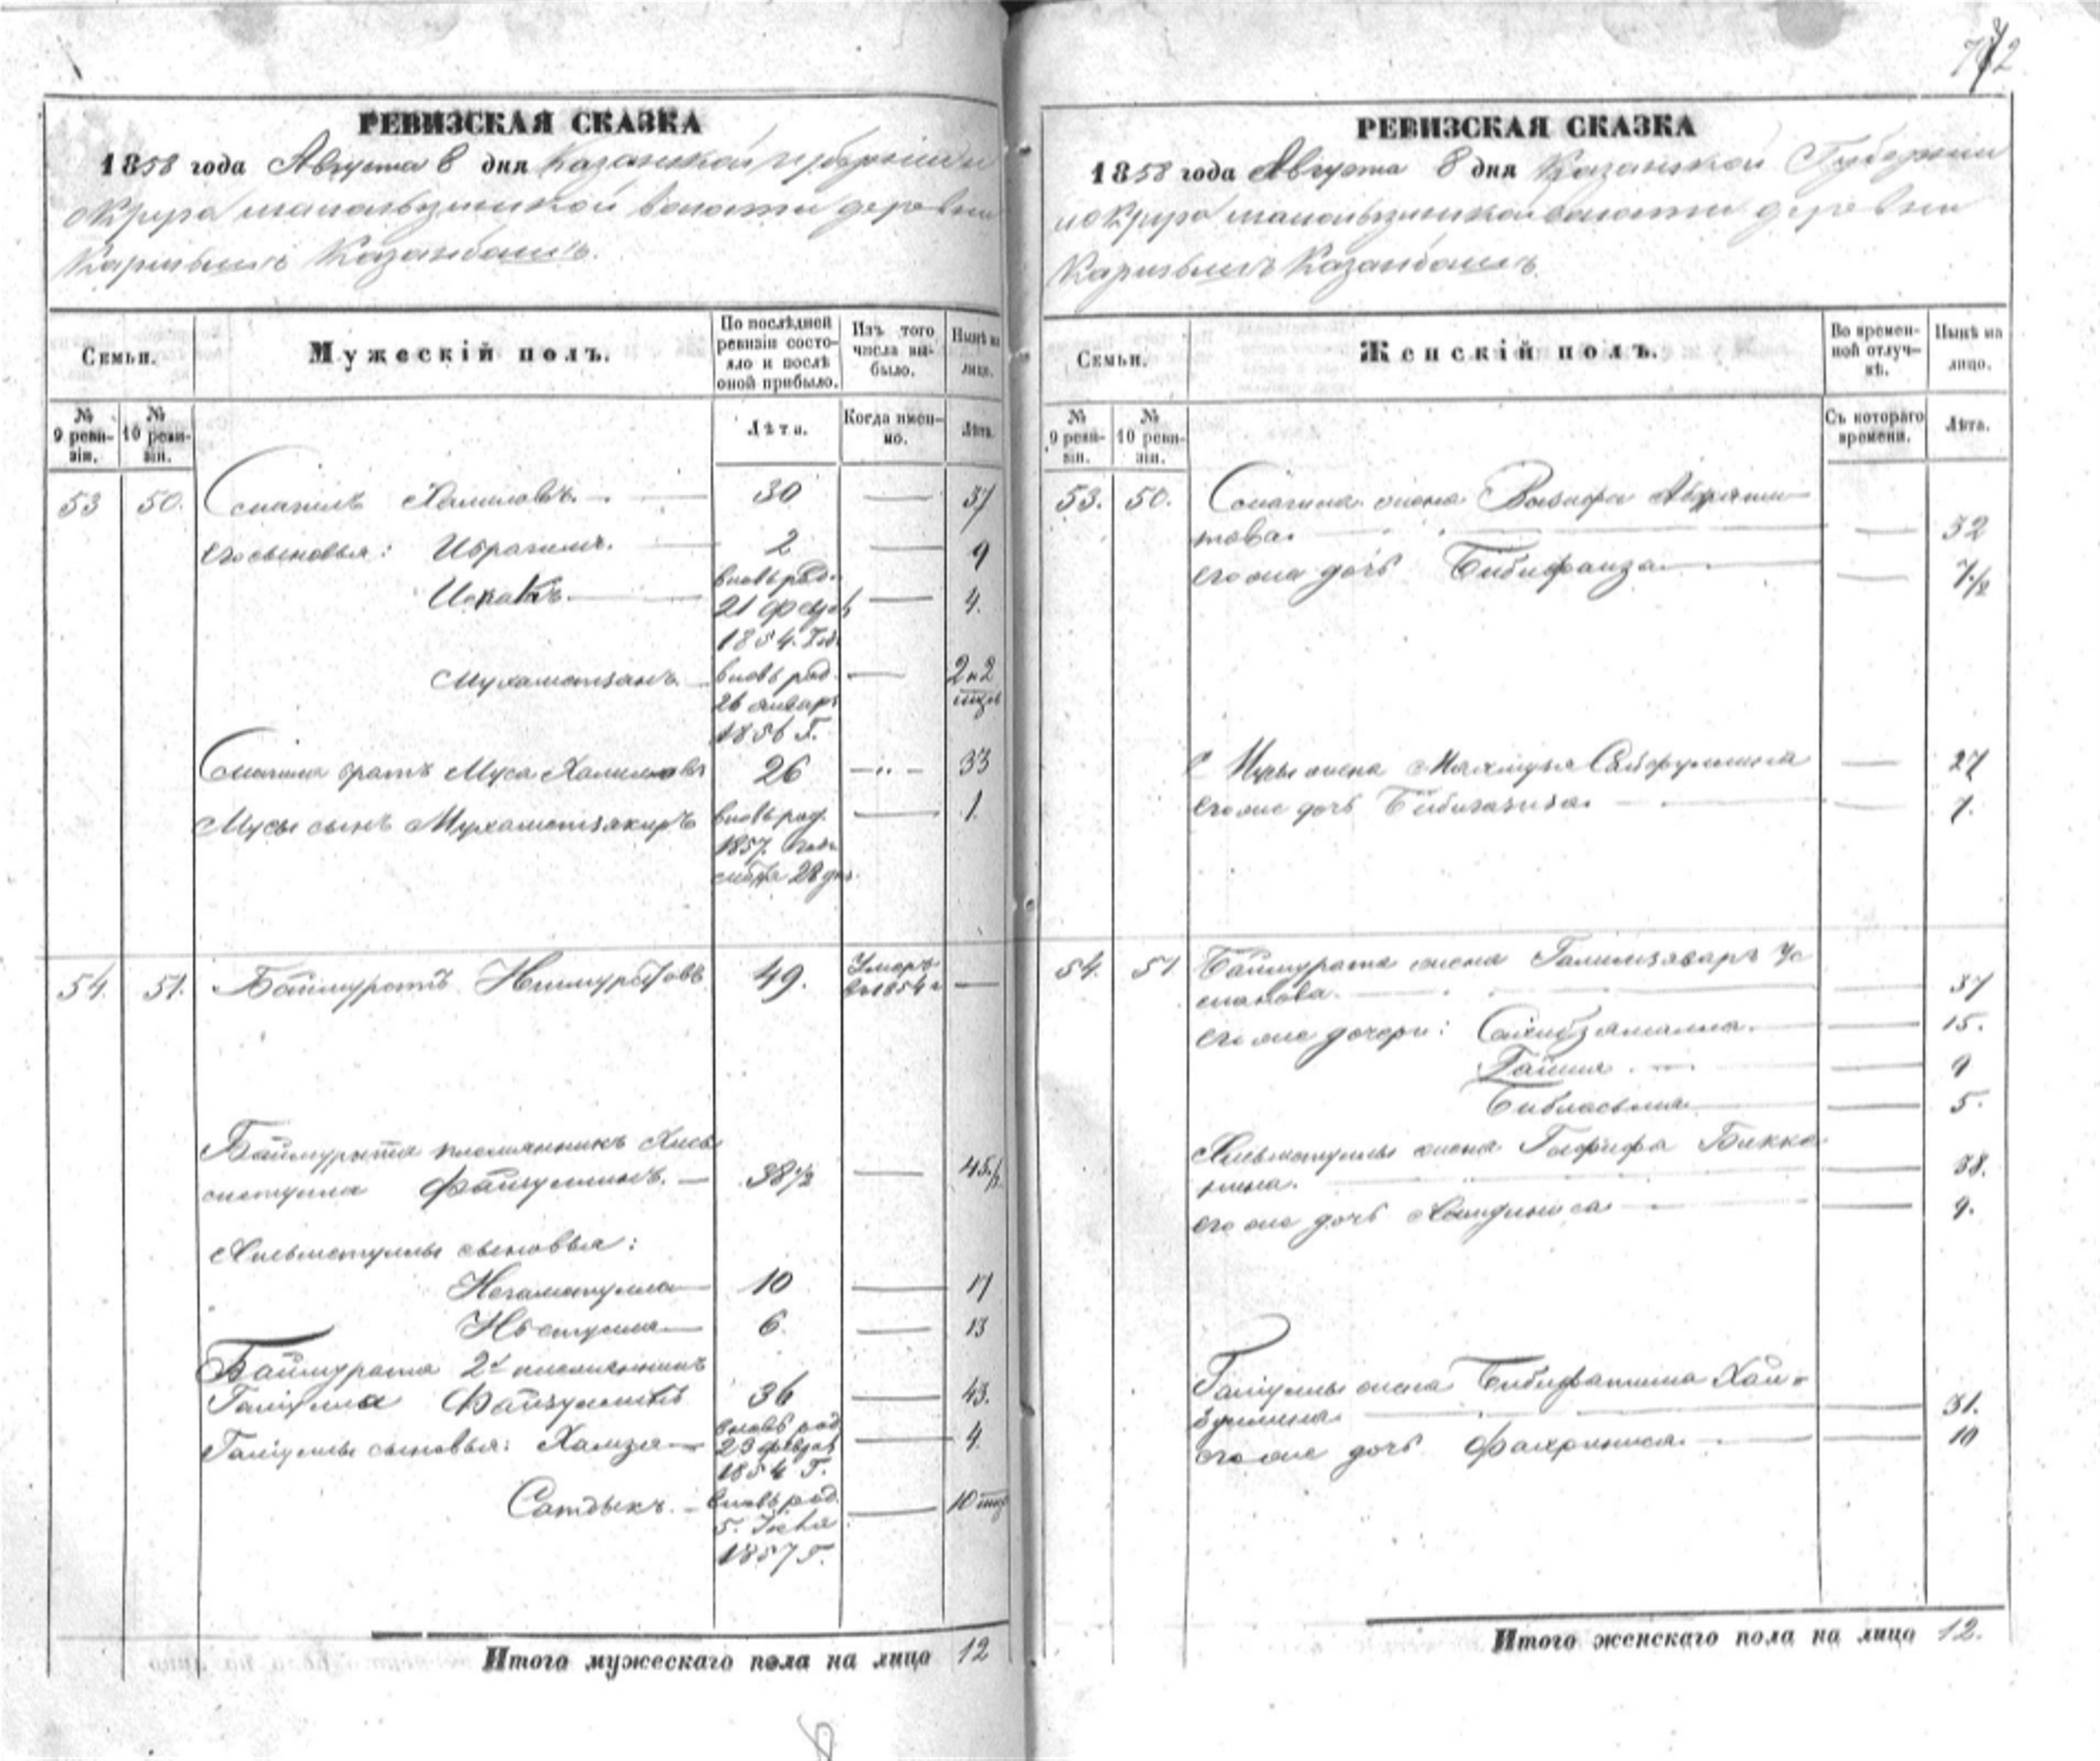 742
РЕВИЗСКАЯ СКАЗКА
1858 года Августа 8 дня Казанской губернии и
округа волости деревни
Казанбашъ.
Семьи.
Мужескій полъ.
По послѣдней ревизіи состояло и послѣ оной прибыло.
Изъ того числа выбыло.
Нынѣ на лицо.
№ 9 ревизіи.
№ 10 ревизіи.
Лѣта.
Когда именно.
Лѣта.
53 50. Смагилъ Халиловъ. 30 37
Его сыновья: Ибрагимъ. 2 9
Исхакъ. вновь род. 21 февр. 1854. 4.
Мухаметзянъ. вновь род. 26 январ. 1856 г. 2 и 2 мѣс
Смагила братъ Муса Халиловъ 26 33
Мусы сынъ Мухаметзякиръ вновь род. 1857 года 28 дня. 1.
54. 51. Баймуратъ Ишмуратовъ 49. Умеръ въ 1854 г
Баймурата племянникъ Хисьметулла Файзуллинъ. 38 1/2 45 1/2
Хисьметуллы сыновья:
Негаметулла 10 17
Ибетулла 6. 13
Баймурата 2й племянникъ
Галиулла Файзуллинъ 36 43.
Галиуллы сыновья: Хамзя вновь род 23 февр. 1854 г. 4.
Сатдыкъ. вновь род. 5. 1857 г. 10 мѣс
Итого мужескаго пола на лицо 12
РЕВИЗСКАЯ СКАЗКА
1858 года Августа 8 дня Казанской Губерніи
и округа волости деревни
Казанбашъ.
Семьи.
Женскій полъ.
Во временной отлучкѣ.
Нынѣ на лицо.
№ 9 ревизіи.
№ 10 ревизіи.
Съ котораго времени.
Лѣта.
53. 50. Смагила жена
това. 32
его же дочь Бибифаиза 7 1/2
Мусы жена Сайфуллина 27
его же дочь Бибиазиза. 7.
54. 51 Баймурата жена Галимзяваръ Ус
манова. 37
его же дочери: Сахибзямалла. 15.
Гайша 9
5.
Хисьметуллы жена Гафифа Бикки
нина. 38.
его же дочь 9.
Галиуллы жена Бибифатима Хай-
буллина 31.
его же дочь Фахриниса 10
Итого женскаго пола на лицо 12.